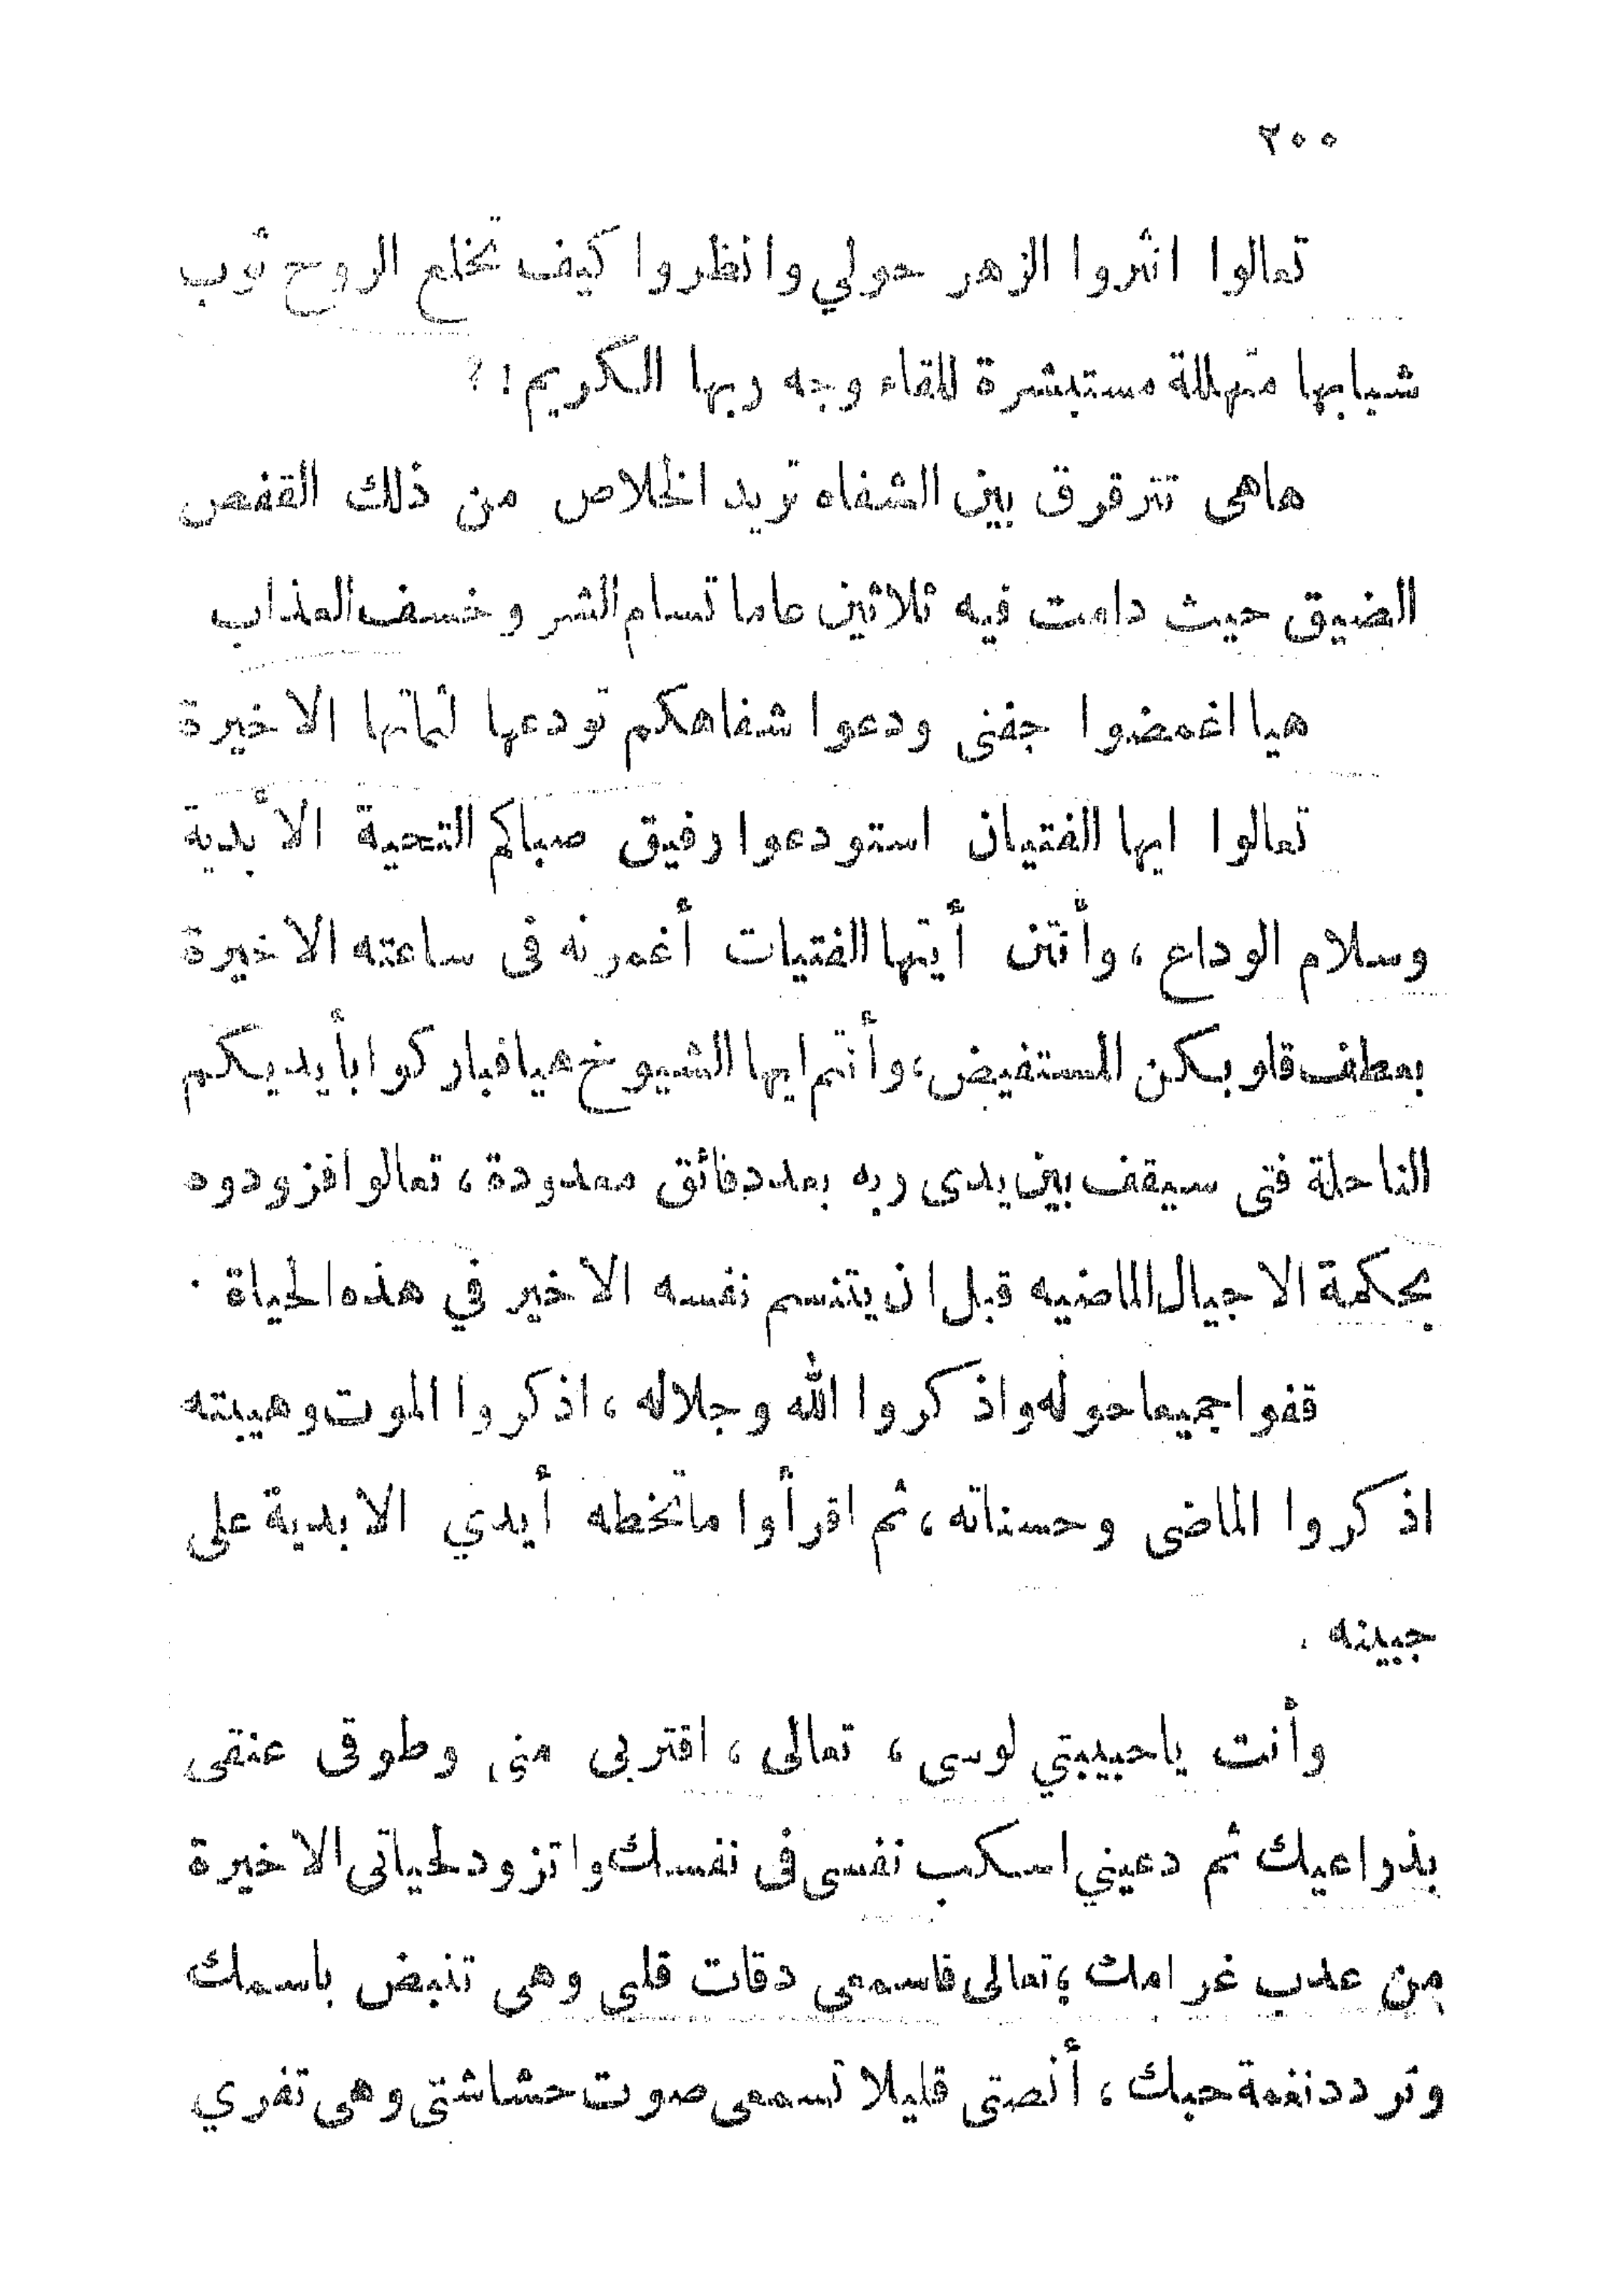 ٢٠٠
تعالوا انثروا الزهر حولي وانظروا كيف تخلع الروح ثوب
شبابها متهللة مستبشرة للقاء وجه ربها الكريم !؟
هاهى تترقرق بين الشفاه تريد الخلاص من ذلك القفص
الضيق حيث دامت فيه ثلاثين عاما تسام الشر وخسف العذاب
هيا اغمضوا جفنى ودعوا شفاهكم تودعها لثماتها الاخيرة
تعالوا ايها الفتيان استودعوا رفيق صباكم التحية الأبدية
وسلام الوداع ، وأنتن أيتها الفتيات أغمرنه فى ساعته الاخيرة
بعطف قلوبكن المستفيض، وأنتم ايها الشيوخ هيا فباركوا بأيديكم
الناحلة فتى سيقف بين يدى ربه بعد دقائق معدودة ، تعالوا فزودوه
بحكمة الاجيال الماضيه قبل ان يتنسم نفسه الاخير في هذه الحياة .
قفوا جميعا حوله واذكروا الله وجلاله ، اذكروا الموت وهيبته
اذكروا الماضى وحسناته ، ثم اقرأوا ماتخطه أيدي الابدية على
جبينه .
وأنت ياحبيبتي لوسى ، تعالى ، اقتربى منى وطوقى عنقى
بذراعيك ثم دعيني اسكب نفسى فى نفسك واتزود لحياتى الاخيرة
من عدب غرامك ؛ تعالى فاسمعى دقات قلبى وهى تنبض باسمك
وتردد نغمة حبك ، أنصتى قليلا تسمعى صوت حشاشتى وهى تفري